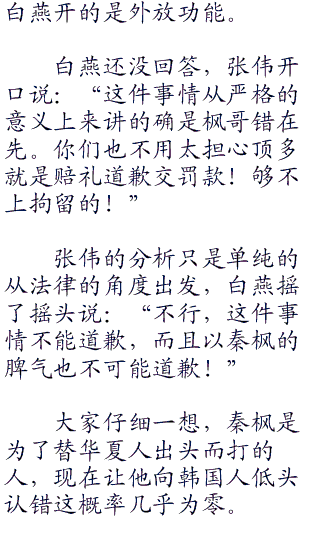 白燕开的是外放功能。
白燕还没回答，张伟开
口说：“这件事情从严格的
意义上来讲的确是枫哥错在
先。你们也不用太担心顶多
就是赔礼道歉交罚款！够不
上拘留的！”
张伟的分析只是单纯的
从法律的角度出发，白燕摇
了摇头说：“不行，这件事
情不能道歉，而且以秦枫的
脾气也不可能道歉！”
大家仔细一想，秦枫是
为了替华夏人出头而打的
人，现在让他向韩国人低头
认错这概率几乎为零。